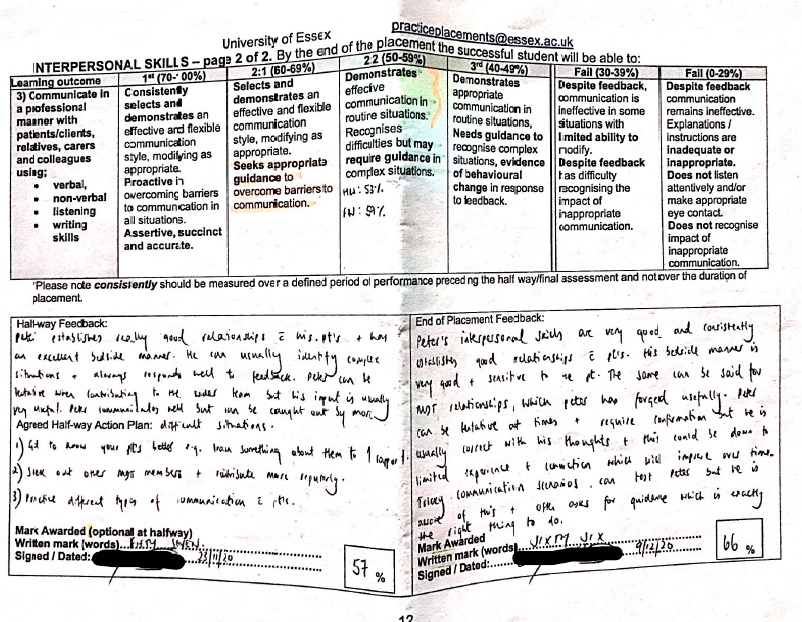 University of Essex
practiceplacements@essex.ac.uk
INTERPERSONAL SKILLS – page 2 of 2. By the end of the placement the successful student will be able to:
Learning outcome
3) Communicate in
a professional
manner with
patients/clients,
relatives, carers
and colleagues
using;
• verbal,
• non-verbal
• listening
• writing
skills
1st (70-100%)
Consistently
selects and
demonstrates an
effective and flexible
communication
style, modifying as
appropriate.
Proactive in
overcoming barriers
to communication in
all situations.
Assertive, succinct
and accurate.
2:1 (60-69%)
Selects and
demonstrates an
effective and flexible
communication
style, modifying as
appropriate.
Seeks appropriate
guidance to
overcome barriers to
communication.
2:2 (50-59%)
Demonstrates
effective
communication in
routine situations.
Recognises
difficulties but may
require guidance in
complex situations.
HW: 53%
FW: 59%
3rd (40-49%)
Demonstrates
appropriate
communication in
routine situations,
Needs guidance to
recognise complex
situations, evidence
of behavioural
change in response
to feedback.
Fail (30-39%)
Despite feedback,
communication is
ineffective in some
situations with
limited ability to
modify.
Despite feedback
has difficulty
recognising the
impact of
inappropriate
communication.
Fail (0-29%)
Despite feedback
communication
remains ineffective.
Explanations /
instructions are
inadequate or
inappropriate.
Does not listen
attentively and/or
make appropriate
eye contact.
Does not recognise
impact of
inappropriate
communication.
*Please note consistently should be measured over a defined period of performance preceding the half way/final assessment and not over the duration of
placement.
Half-way Feedback:
Peter establishes really good relationships c̄ his pt's + has
an excellent bedside manner. He can usually identify complex
situations + always responds well to feedback. Peter can be
tentative when contributing to the wider team but his input is usually
very useful. Peter communicates well but can be caught out by more
Agreed Half-way Action Plan: difficult situations.
1) Get to know your pt's better e.g. learn something about them to ↑ rapport.
2) Seek out other MDT members + contribute more regularly.
3) Practice different types of communication c̄ pt's.
Mark Awarded (optional at halfway)
Written mark (words)...FIFTY SEVEN
Signed / Dated: 23/11/20
57 %
End of Placement Feedback:
Peter's interpersonal skills are very good and consistently
establishes good relationships c̄ pt's. His bedside manner is
very good + sensitive to the pt. The same can be said for
MDT relationships, which peter has forged usefully. Peter
can be tentative at times + require confirmation but he is
usually correct with his thoughts + this could be down to
limited experience + conviction which will improve over time.
Tricky communication scenarios can test Peter but he is
aware of this + often asks for guidance which is exactly
the right thing to do.
Mark Awarded
Written mark (words) SIXTY SIX
Signed / Dated: 9/12/20
66 %
12